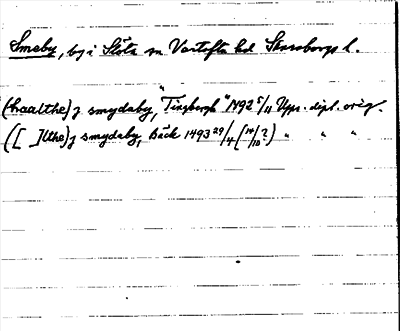 Smeby, by i Slöta sn Vartofta hd Skaraborgs l.
(haalthe) j smydaby, "Tingbergh" 1492 5/11 Upps. dipl. orig.
([ ]lthe) j smydaby, Bäck 1493 29/4 (14/10?) " " "